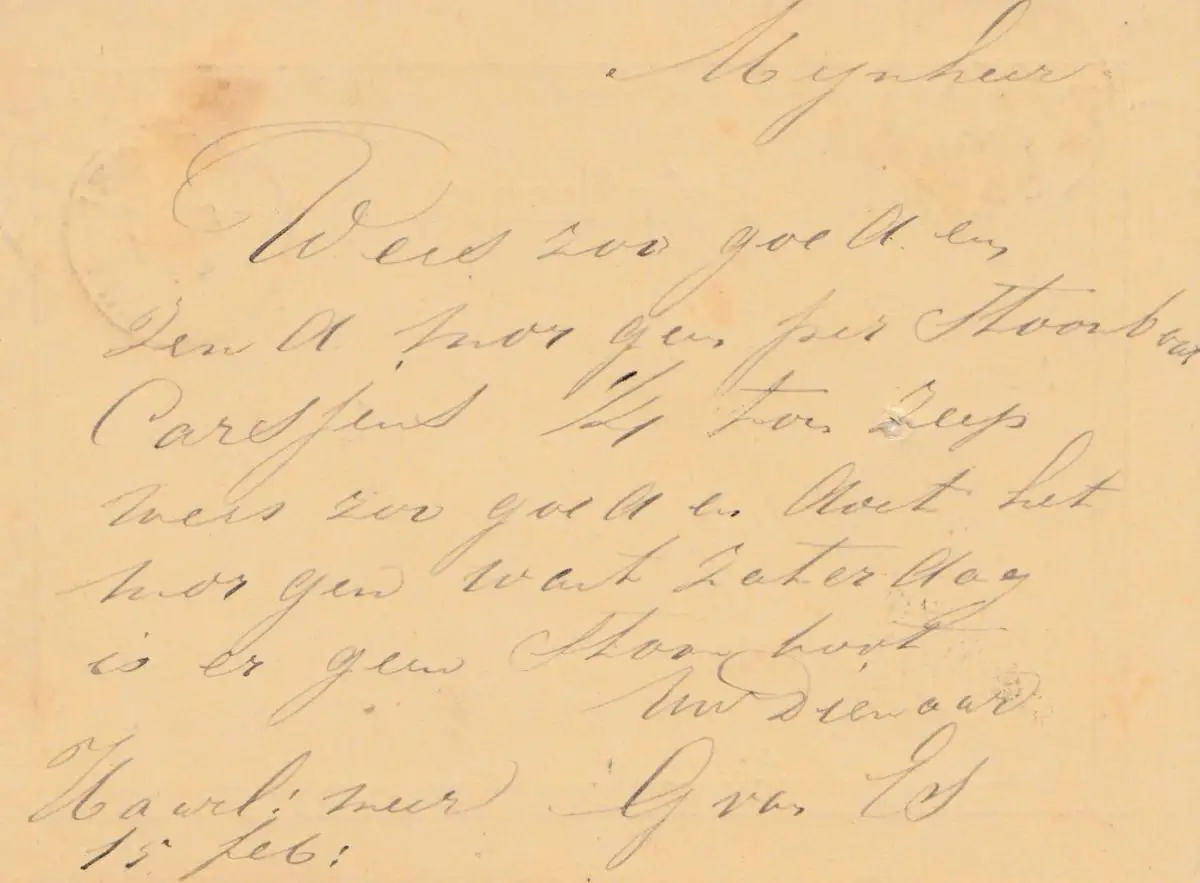 Mynheer
Wees zoo goed en
Zend morgen per Stoomboot
Carsjens 1/4 ton Zeep
wees zoo goed en doet het
morgen want zaterdag
is er geen Stoomboot
Uw Dienaar
Haarl: meer G van Es
15 feb: